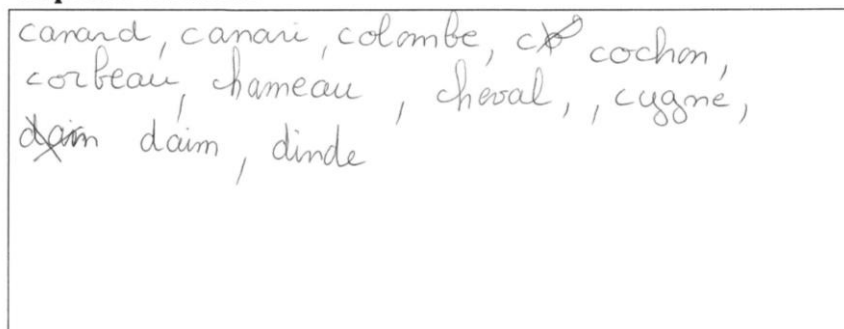 canard, canari, colombe, cochon,
corbeau, chameau, cheval, , cygne,
daim, dinde